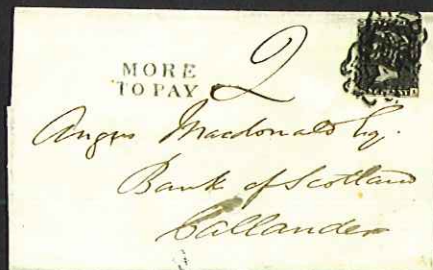 MORE
TO PAY
2
Angus Macdonald Esq.
Bank of Scotland
Callander